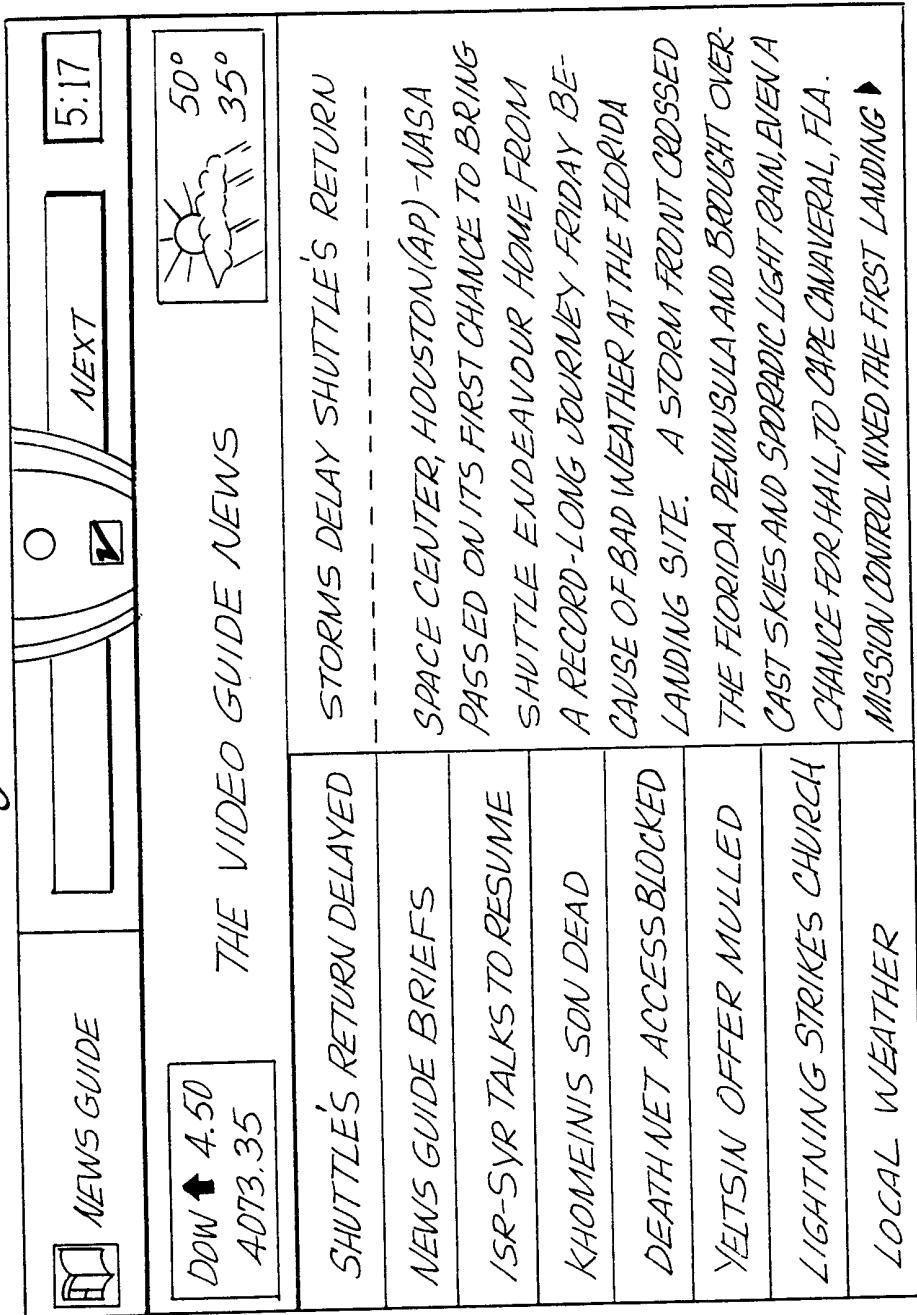 NEWS GUIDE
NEXT
5:17
DOW ⬆ 4.50
4073.35
THE VIDEO GUIDE NEWS
50°
35°
SHUTTLE'S RETURN DELAYED
NEWS GUIDE BRIEFS
ISR-SYR TALKS TO RESUME
KHOMEINIS SON DEAD
DEATH NET ACCESS BLOCKED
YELTSIN OFFER MULLED
LIGHTNING STRIKES CHURCH
LOCAL WEATHER
STORMS DELAY SHUTTLE'S RETURN
SPACE CENTER, HOUSTON (AP) - NASA
PASSED ON ITS FIRST CHANCE TO BRING
SHUTTLE ENDEAVOUR HOME FROM
A RECORD-LONG JOURNEY FRIDAY BE-
CAUSE OF BAD WEATHER AT THE FLORIDA
LANDING SITE. A STORM FRONT CROSSED
THE FLORIDA PENINSULA AND BROUGHT OVER-
CAST SKIES AND SPORADIC LIGHT RAIN, EVEN A
CHANCE FOR HAIL, TO CAPE CANAVERAL, FLA.
MISSION CONTROL NIXED THE FIRST LANDING ▶